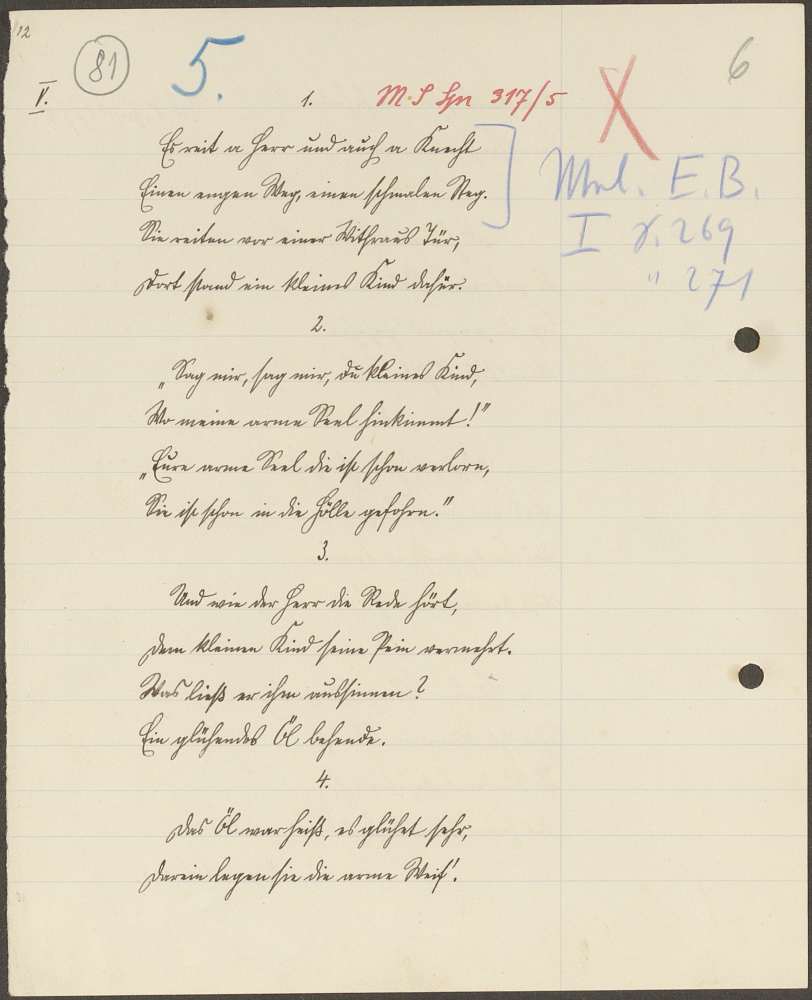 12
81
5.
6
V.
1.
M.S Spn 317/5
X
Es reit a Herr und auch a Knecht
Einen engen Weg, einen schmalen Steg.
Mel. E.B.
I S. 269
" 271
Sie reiten vor einer Withraus Tür,
Dort stand ein kleines Kind dafür.
2.
„Sag mir, sag mir, du kleines Kind,
Wo meine arme Seel hinkimmt!"
„Eure arme Seel die ist schon verlorn,
Sie ist schon in die Hölle gefohrn."
3.
Und wie der Herr die Rede hört,
Dem kleinen Kind seine Pein vermehrt.
Was ließ er ihm aussinnen?
Ein glühendes Öl behende.
4.
Das Öl war heiß, es glühet sehr,
Darein legen sie die arme